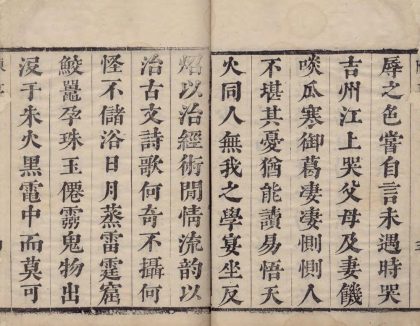 辱之色嘗自言未遇時哭
吉州江上哭父母及妻饑
啖瓜寒御葛凄凄惻惻人
不堪其憂猶能讀易悟天
火同人無我之學宴坐反
炤以治經術閒情流韵以
治古文詩歌何奇不攝何
怪不儲浴日月蒸雷霆窟
鮫鼉孕珠玉僊靈鬼物出
沒于朱火黑電中而莫可